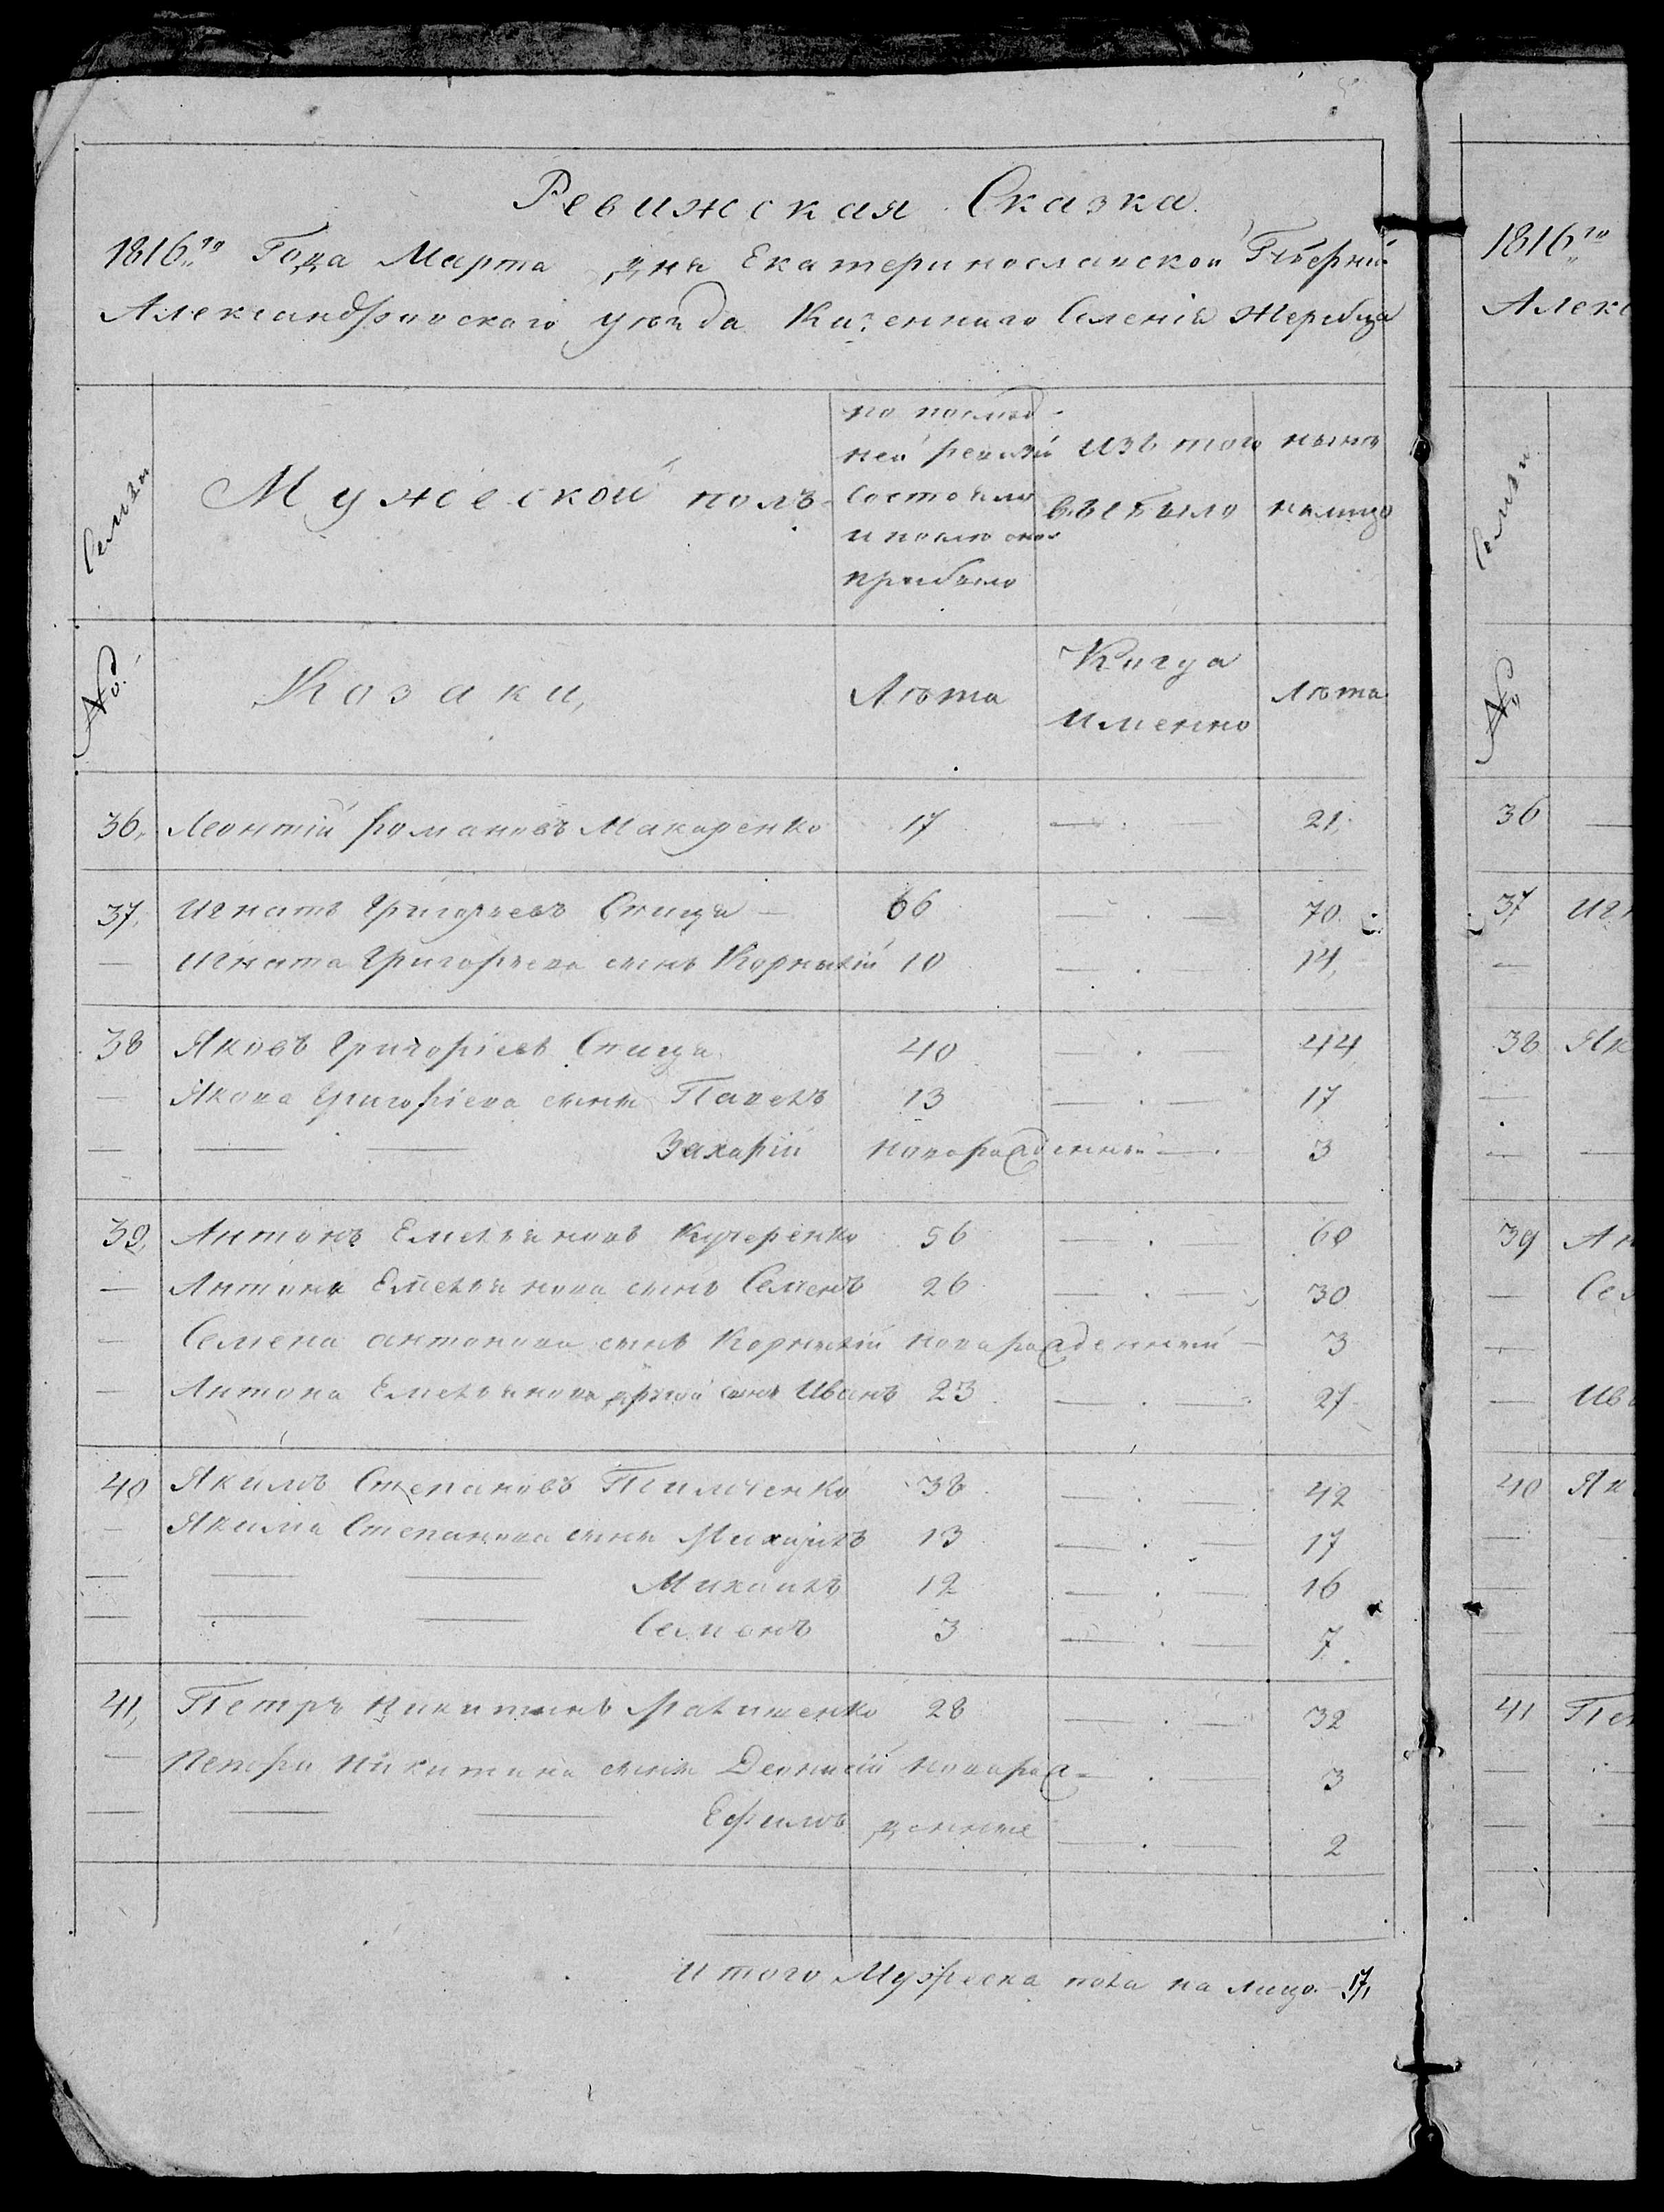 Ревижская Сказка.
1816го Года Марта дня Екатеринославской Губерніи
Александровского уезда Казенного Селенія Жеребца
Семьи
Мужеской полъ
по послед-
ней ревизіи
состояло
и после онои
прибыло
изъ того
выбыло
ныне
налицо
№
Козаки,
Лѣта
Когда
именно
Лѣта
36, Леонтій Романовъ Макаренко 17 — . — 21,
37, Игнатъ Григорьевъ Спица — 66 — . — 70.
— Игната Григорьева сынъ Корнилій 10 — . — 14,
38 Яковъ Григоріевъ Спица 40 — . — 44
— Якова Григоріева сыны Павелъ 13 — . — 17
— — — Захарій новорожденный — . 3
39, Антонъ Емельяновъ Кучеренко 56 — . — 60
— Антона Емельянова сынъ Семенъ 26 — . — 30
— Семена Антонова сынъ Корнилій новорожденный — 3
— Антона Емельянова другой сынъ Иванъ 23 — . — 27
40 Якимъ Степановъ 38 — . — 42
— Якима Степанова сыны Михаилъ 13 — . — 17
— — — Михаилъ 12 — . — 16
— — — Семенъ 3 — . — 7.
41, Петръ Никитинъ 28 — . — 32
— Петра Никитина сыны Деонисій новорож- — . — 3
— — — Ефимъ денные — . — 2
Итого Мужеска пола на лицо — 17,
1816го
Алекс
Семьи
№
36 —
37 Игн
—
38 Як
—
— —
39 Ан
— Сем
—
— Ива
40 Як
—
—
—
41 Пет
—
—